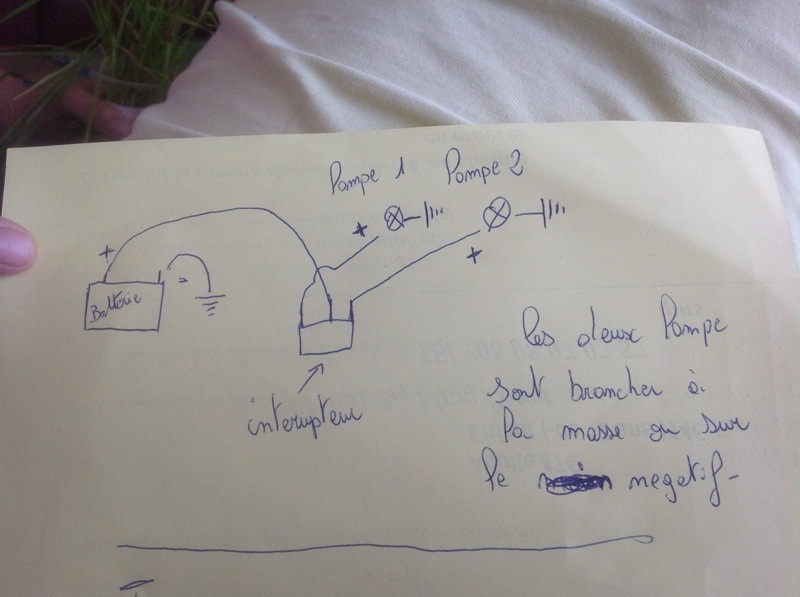 Pompe 1 Pompe 2
+
+
+
Batterie
-
interupteur
les deux Pompe
sont brancher à
la masse ou sur
le negatif-